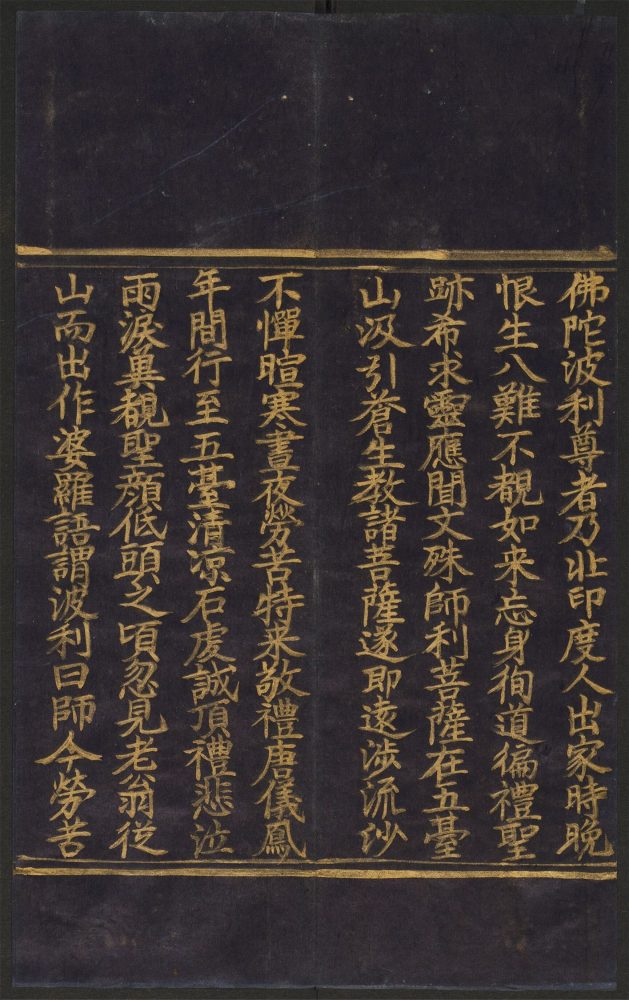 佛陀波利尊者乃北印度人出家時晚
恨生八難不覩如来忘身徇道徧禮聖
跡希求靈應聞文殊師利菩薩在五臺
山汲引蒼生教諸菩薩遂即遠涉流沙
不憚暄寒晝夜勞苦特来敬禮唐儀鳳
年間行至五臺清凉石處誠頂禮悲泣
雨淚冀覩聖顔低頭之頃忽見老翁從
山而出作婆羅語謂波利曰師今勞苦